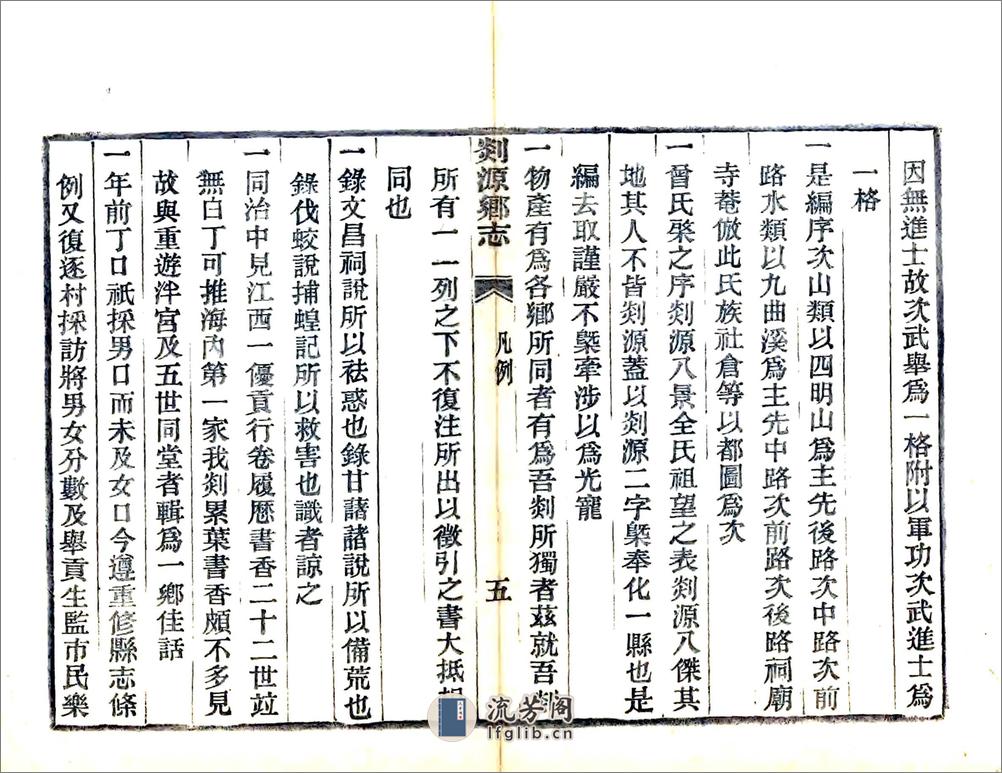 因無進士故次武舉爲一格附以軍功次武進士爲
一格
一是編序次山類以四明山爲主先後路次中路次前
路水類以九曲溪爲主先中路次前路次後路祠廟
寺菴倣此氏族社倉等以都圖爲次
一晉氏聚之序剡源八景全氏祖望之表剡源八傑其
地其人不皆剡源蓋以剡源二字槩奉化一縣也是
編去取謹嚴不槩牽涉以爲光寵
一物產有爲各鄉所同者有爲吾剡所獨者茲就吾剡
剡源鄉志
凡例
五
所有一一列之下不復注所出以徵引之書大抵相
同也
一錄文昌祠說所以袪惑也錄甘藷諸說所以備荒也
錄伐蛟說捕蝗記所以救害也識者諒之
一同治中見江西一優貢行卷履歷書香二十二世竝
無白丁可推海內第一家我剡累葉書香頗不多見
故與重遊泮宮及五世同堂者輯爲一鄉佳話
一年前丁口祇採男口而未及女口今遵重修縣志條
例又復逐村採訪將男女分數及舉貢生監市民樂
流芳阁
lfglib.cn